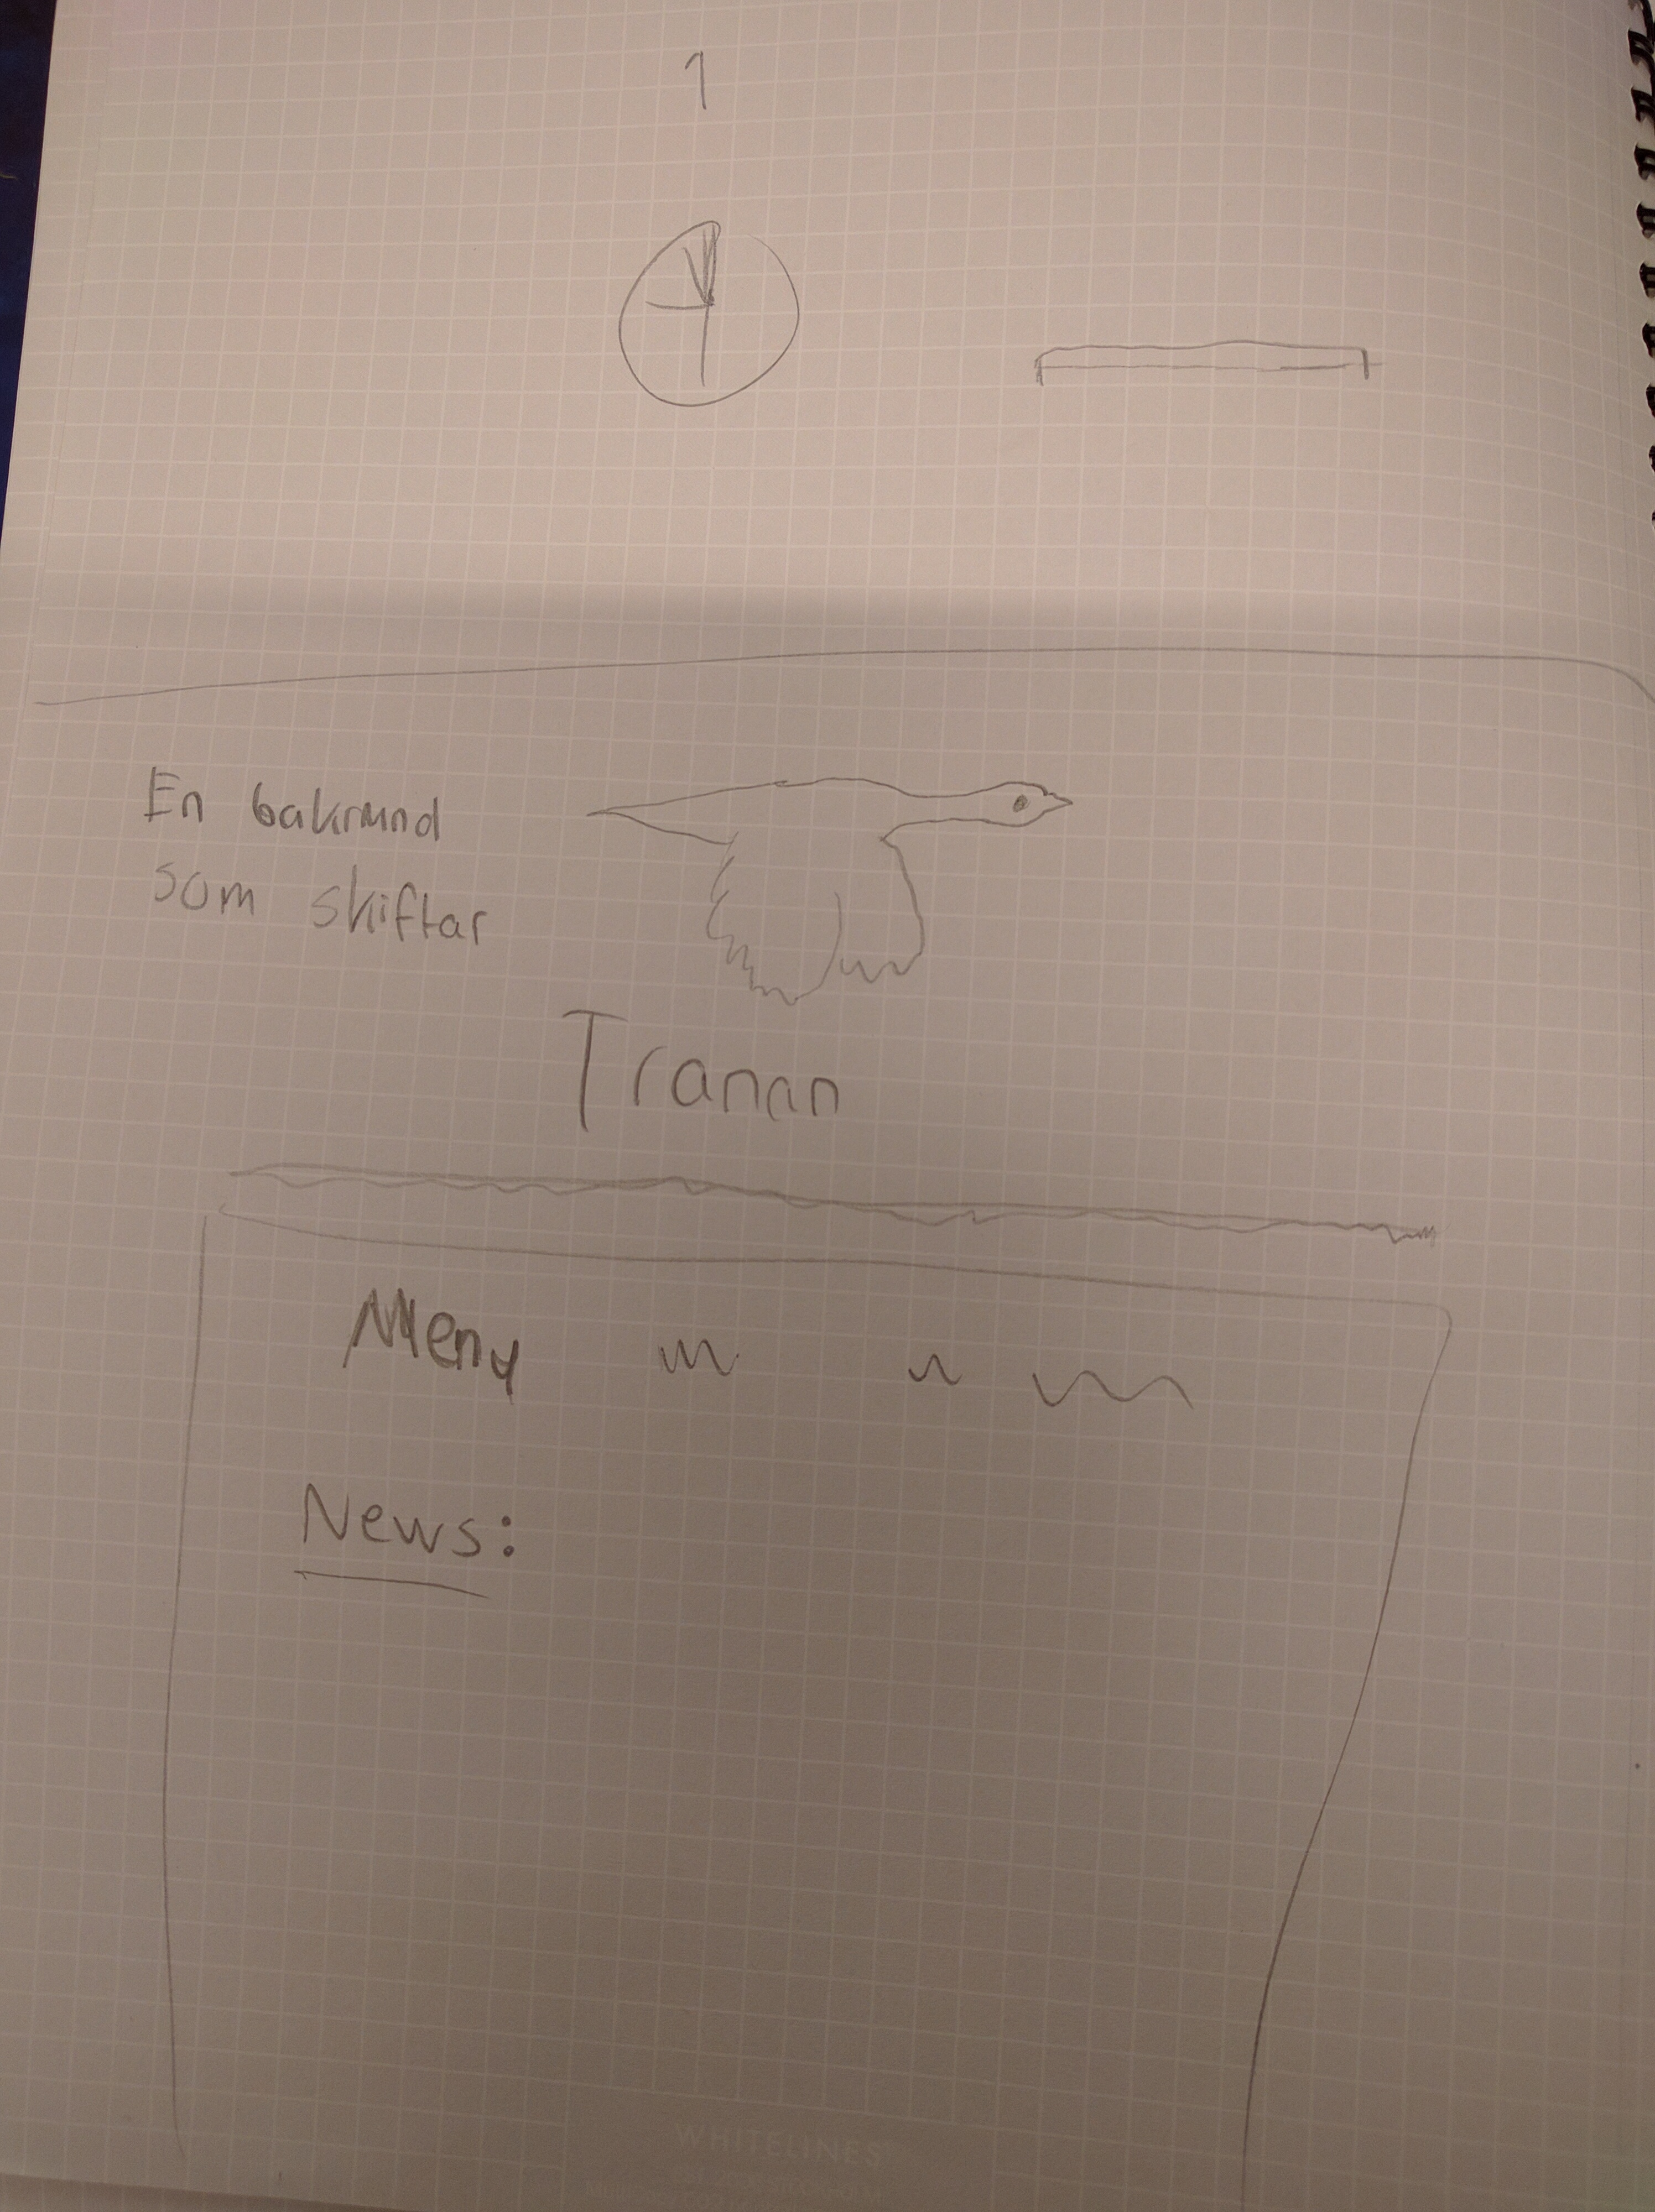 1
En bakrund
som skiftar
Tranan
Meny
News:
WHITELINES